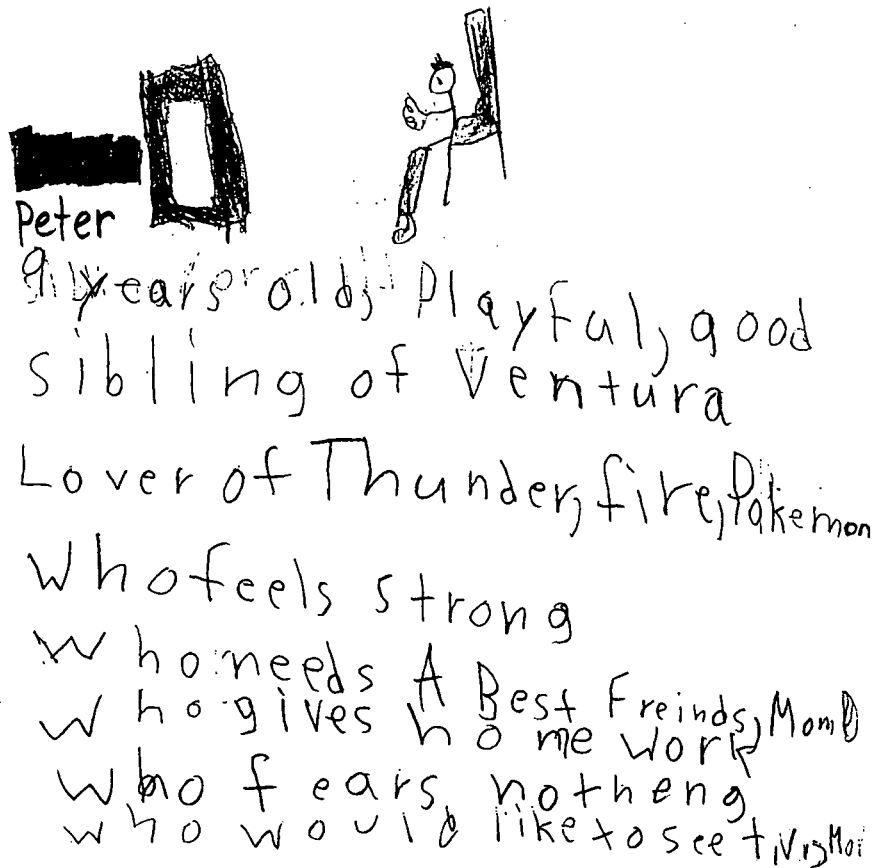 Peter
9 years old, Playful, good
sibling of Ventura
Lover of Thunder, fire, Pokemon
Who feels strong
Who needs A Best Freinds, Mom
Who gives home work
Who fears notheng
who would like to see t.v.,